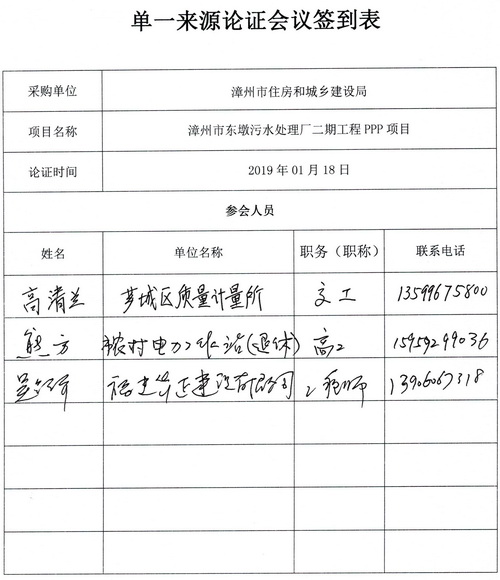 单一来源论证会议签到表
采购单位 漳州市住房和城乡建设局
项目名称 漳州市东墩污水处理厂二期工程 PPP 项目
论证时间 2019 年 01 月 18 日
参会人员
姓名 单位名称 职务（职称） 联系电话
高清兰 芗城区质量计量所 13599675800
熊方 农村电力工作站(退休) 高工 15959299036
福建 建设有限公司 工程师 13906067318